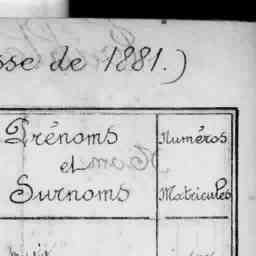 sse de 1881.)
Prénoms
et
Surnoms
Numéros
Matricules